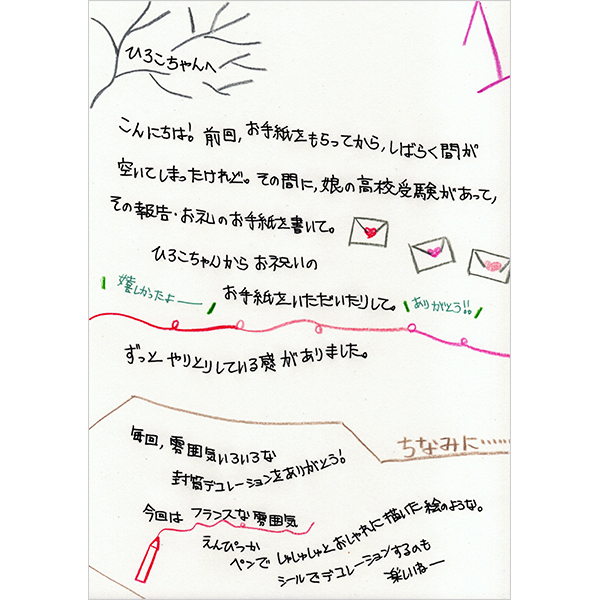 ひろこちゃんへ
こんにちは！前回，お手紙をもらってから，しばらく間が
空いてしまったけれど。その間に，娘の高校受験があって，
その報告・お礼のお手紙を書いて。
ひろこちゃんからお祝いの
嬉しかったよ——
お手紙をいただいたりして。
ありがとう！！
ずっとやりとりしている感がありました。
ちなみに……
毎回，雰囲気いろいろな
封筒デコレーションをありがとう！
今回は フランスな雰囲気
えんぴつか
ペンで しゅしゅしゅっとおしゃれに描いた絵のような。
シールでデコレーションするのも
楽しいねー